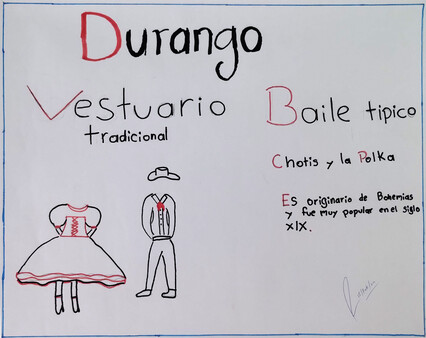 Durango
Vestuario
tradicional
Baile tipico
Chotis y la Polka
Es originario de Bohemias
y fue muy popular en el siglo
XIX.